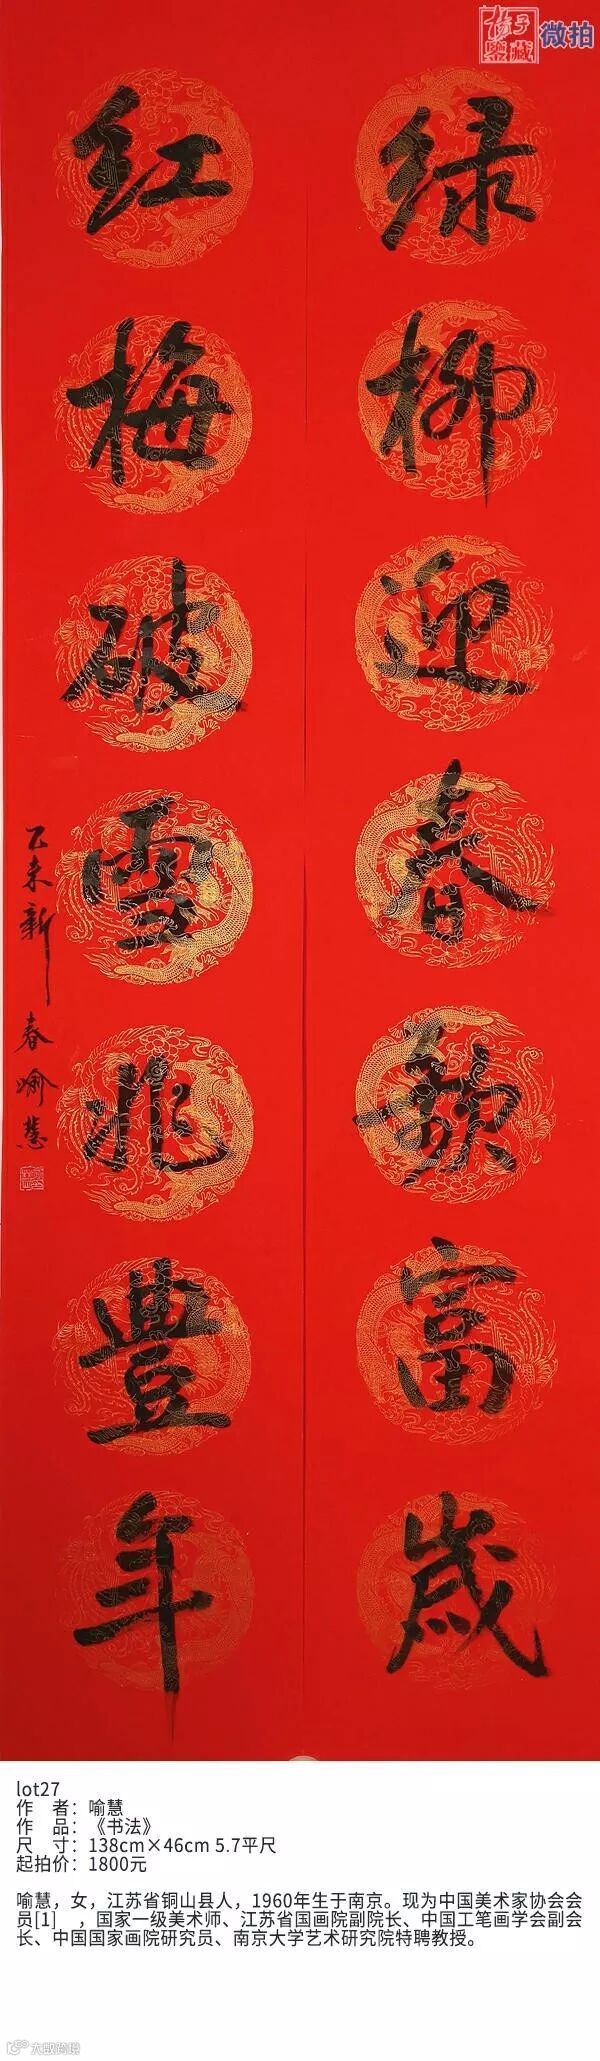 扬子
鑒藏
微拍
绿柳迎春富歲
红梅破雪兆豐年
乙未新春喻慧
lot27
作 者：喻慧
作 品：《书法》
尺 寸：138cm×46cm 5.7平尺
起拍价：1800元
喻慧，女，江苏省铜山县人，1960年生于南京。现为中国美术家协会会
员[1] ，国家一级美术师、江苏省国画院副院长、中国工笔画学会副会
长、中国国家画院研究员、南京大学艺术研究院特聘教授。
大数跨境